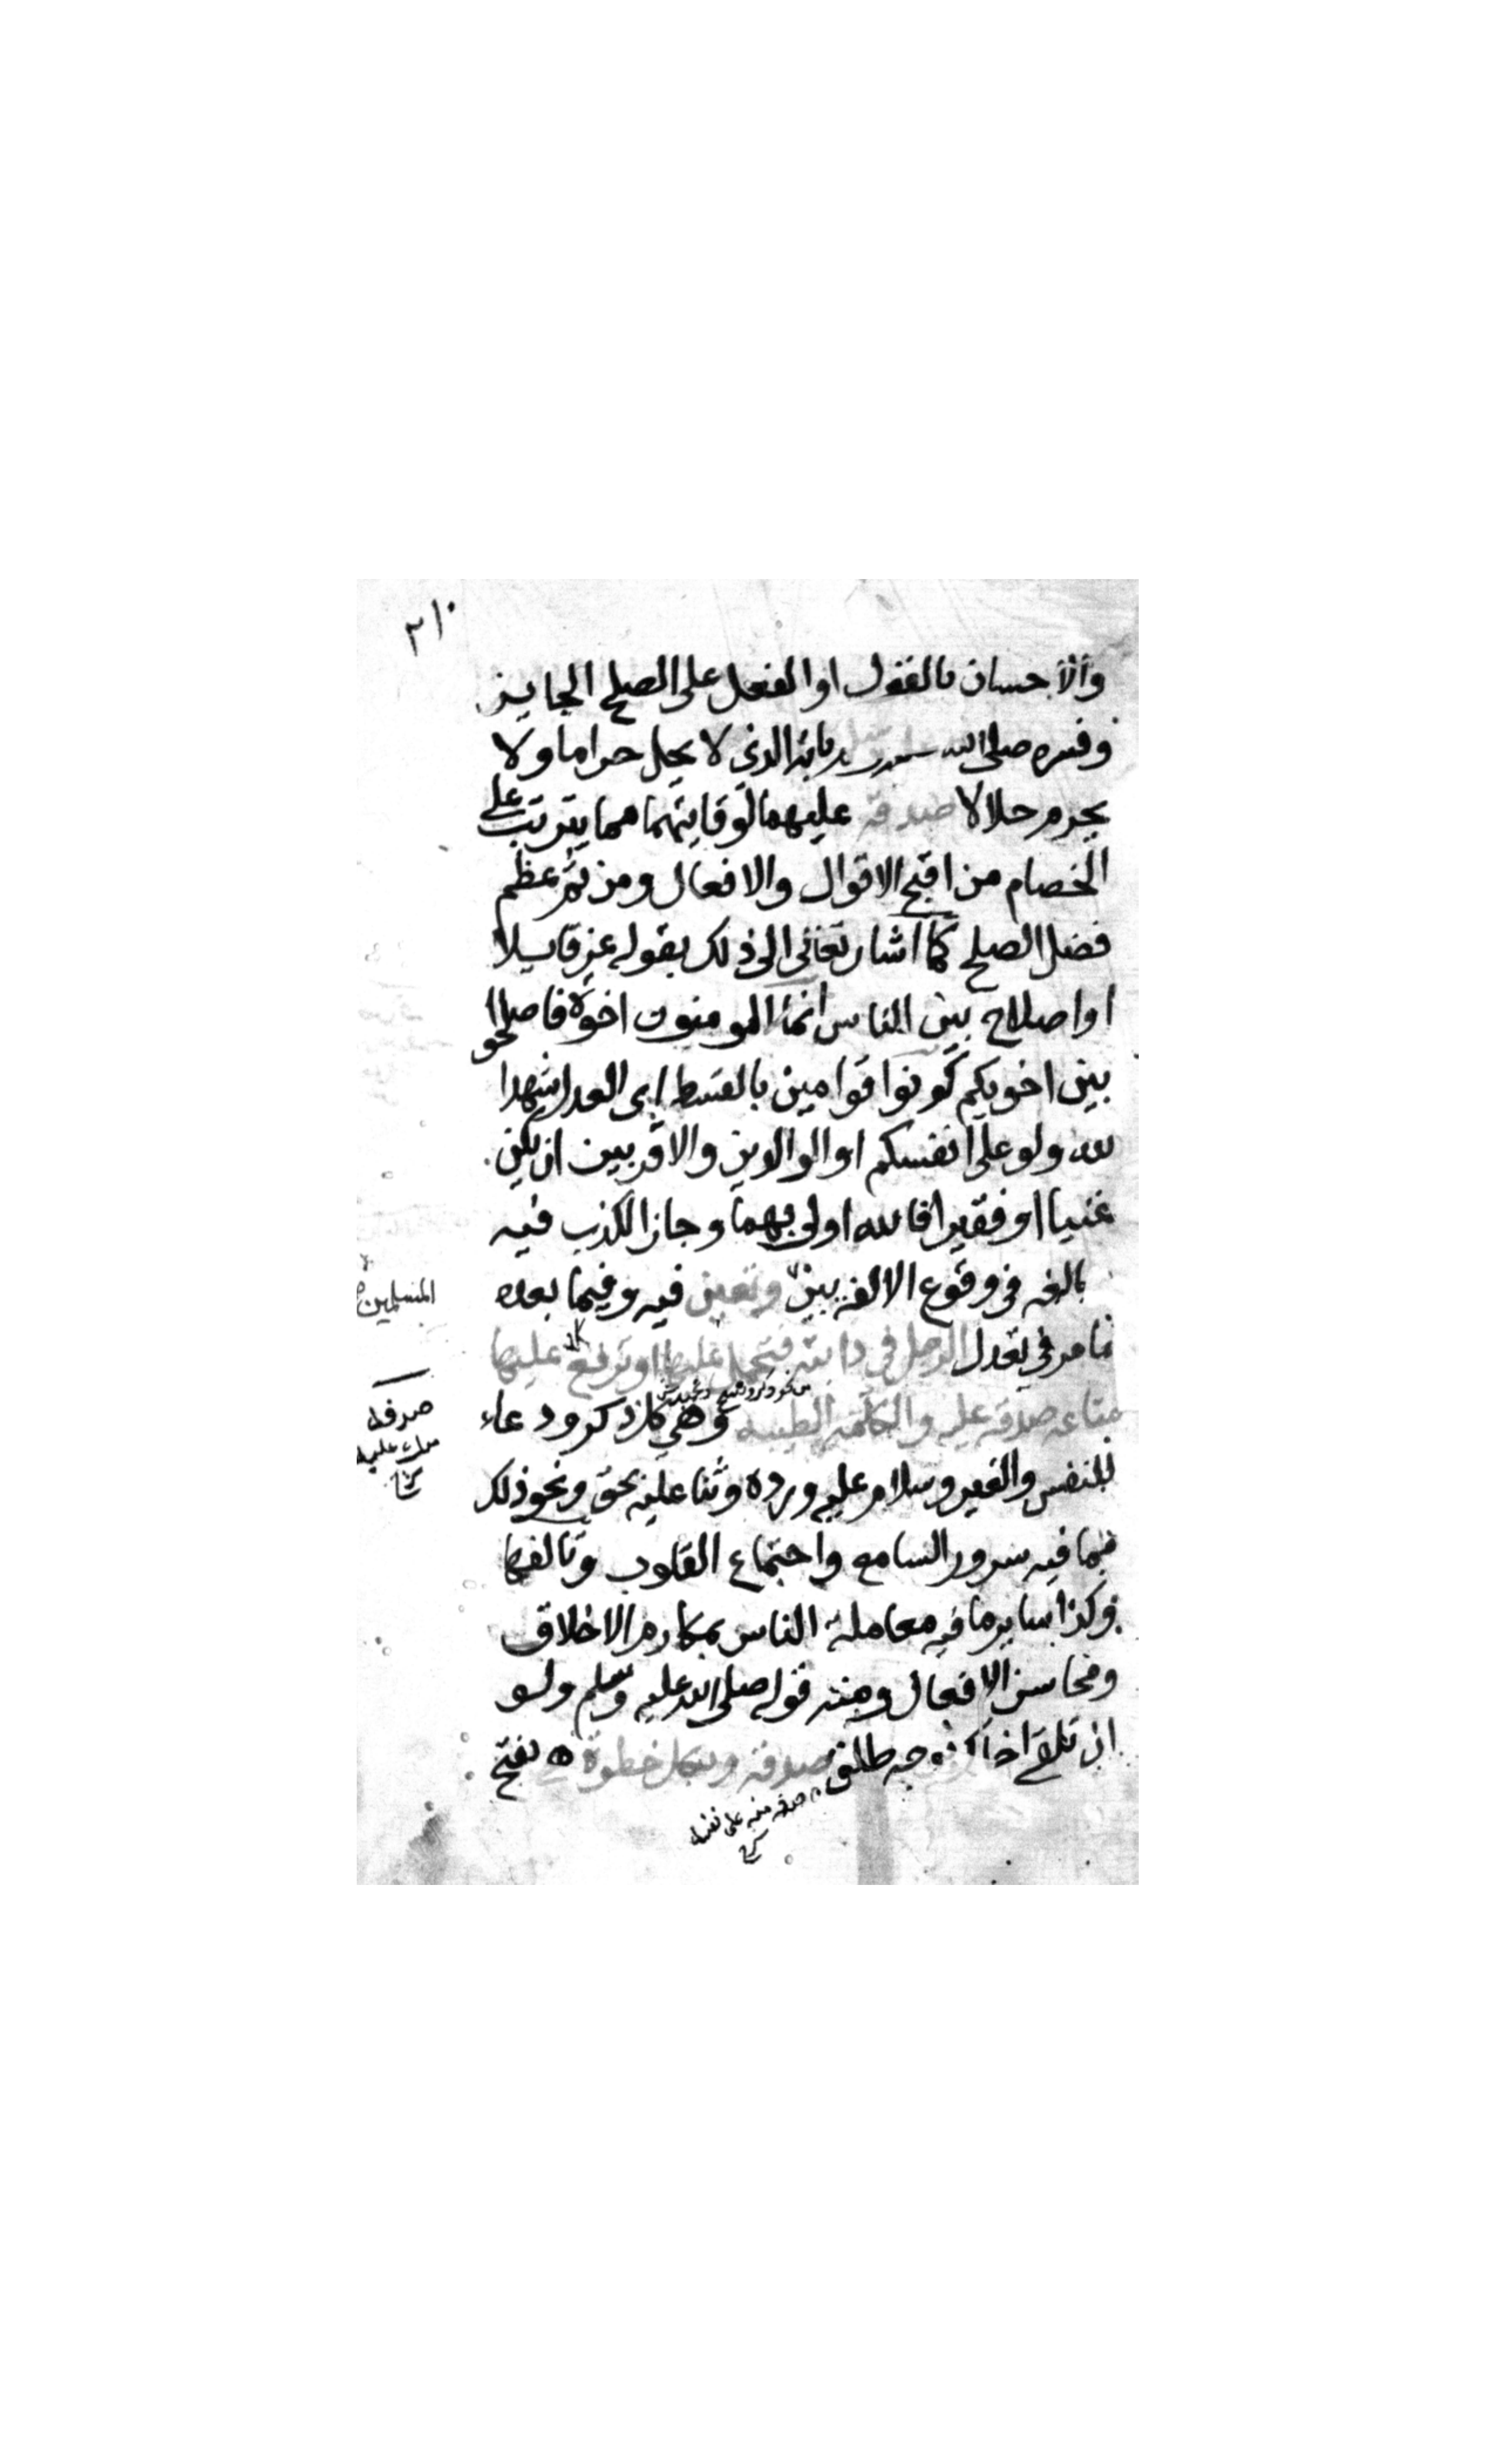 ٢١٠
والاحسان بالقول او الفعل على الصلح الجايز
وفسره صلى الله بانه الذي لا يحل حراما ولا
يحرم حلالا صدقة عليهما لوقايتهما مما يترتب على
الخصام من اقبح الاقوال والافعال ومن ثم عظم
فضل الصلح كما اشار تعالى الى ذلك بقوله عز قايلا
او اصلاح بين الناس انما المومنون اخوة فاصلحوا
بين اخويكم كونوا قوامين بالقسط اي العدل شهدا
لله ولو على انفسكم او الوالدين والاقربين ان يكن
غنيا او فقيرا فالله اولى بهما وجاز الكذب فيه
في وقوع الالفة بين وتعين فيه وفيما بعده
المسلمين
ما مر في تعدل الرجل في دابته فتحمل عليها او ترفع له عليها
متاعه صدقة عليه والكلمة الطيبة وهي كل ذكر ودعاء
صدقة
منك عليه
للنفس والغير وسلام عليه ورده وثنا عليه بحق ونحو ذلك
مما فيه سرور السامع واجتماع القلوب وتالفها
وكذا ساير ما فيه معاملة الناس بمكارم الاخلاق
ومحاسن الافعال ومنه قوله صلى الله عليه وسلم ولو
ان تلقى اخاك بوجه طلق صدقة وبكل خطوة بفتح
صدقة منه على نفسه